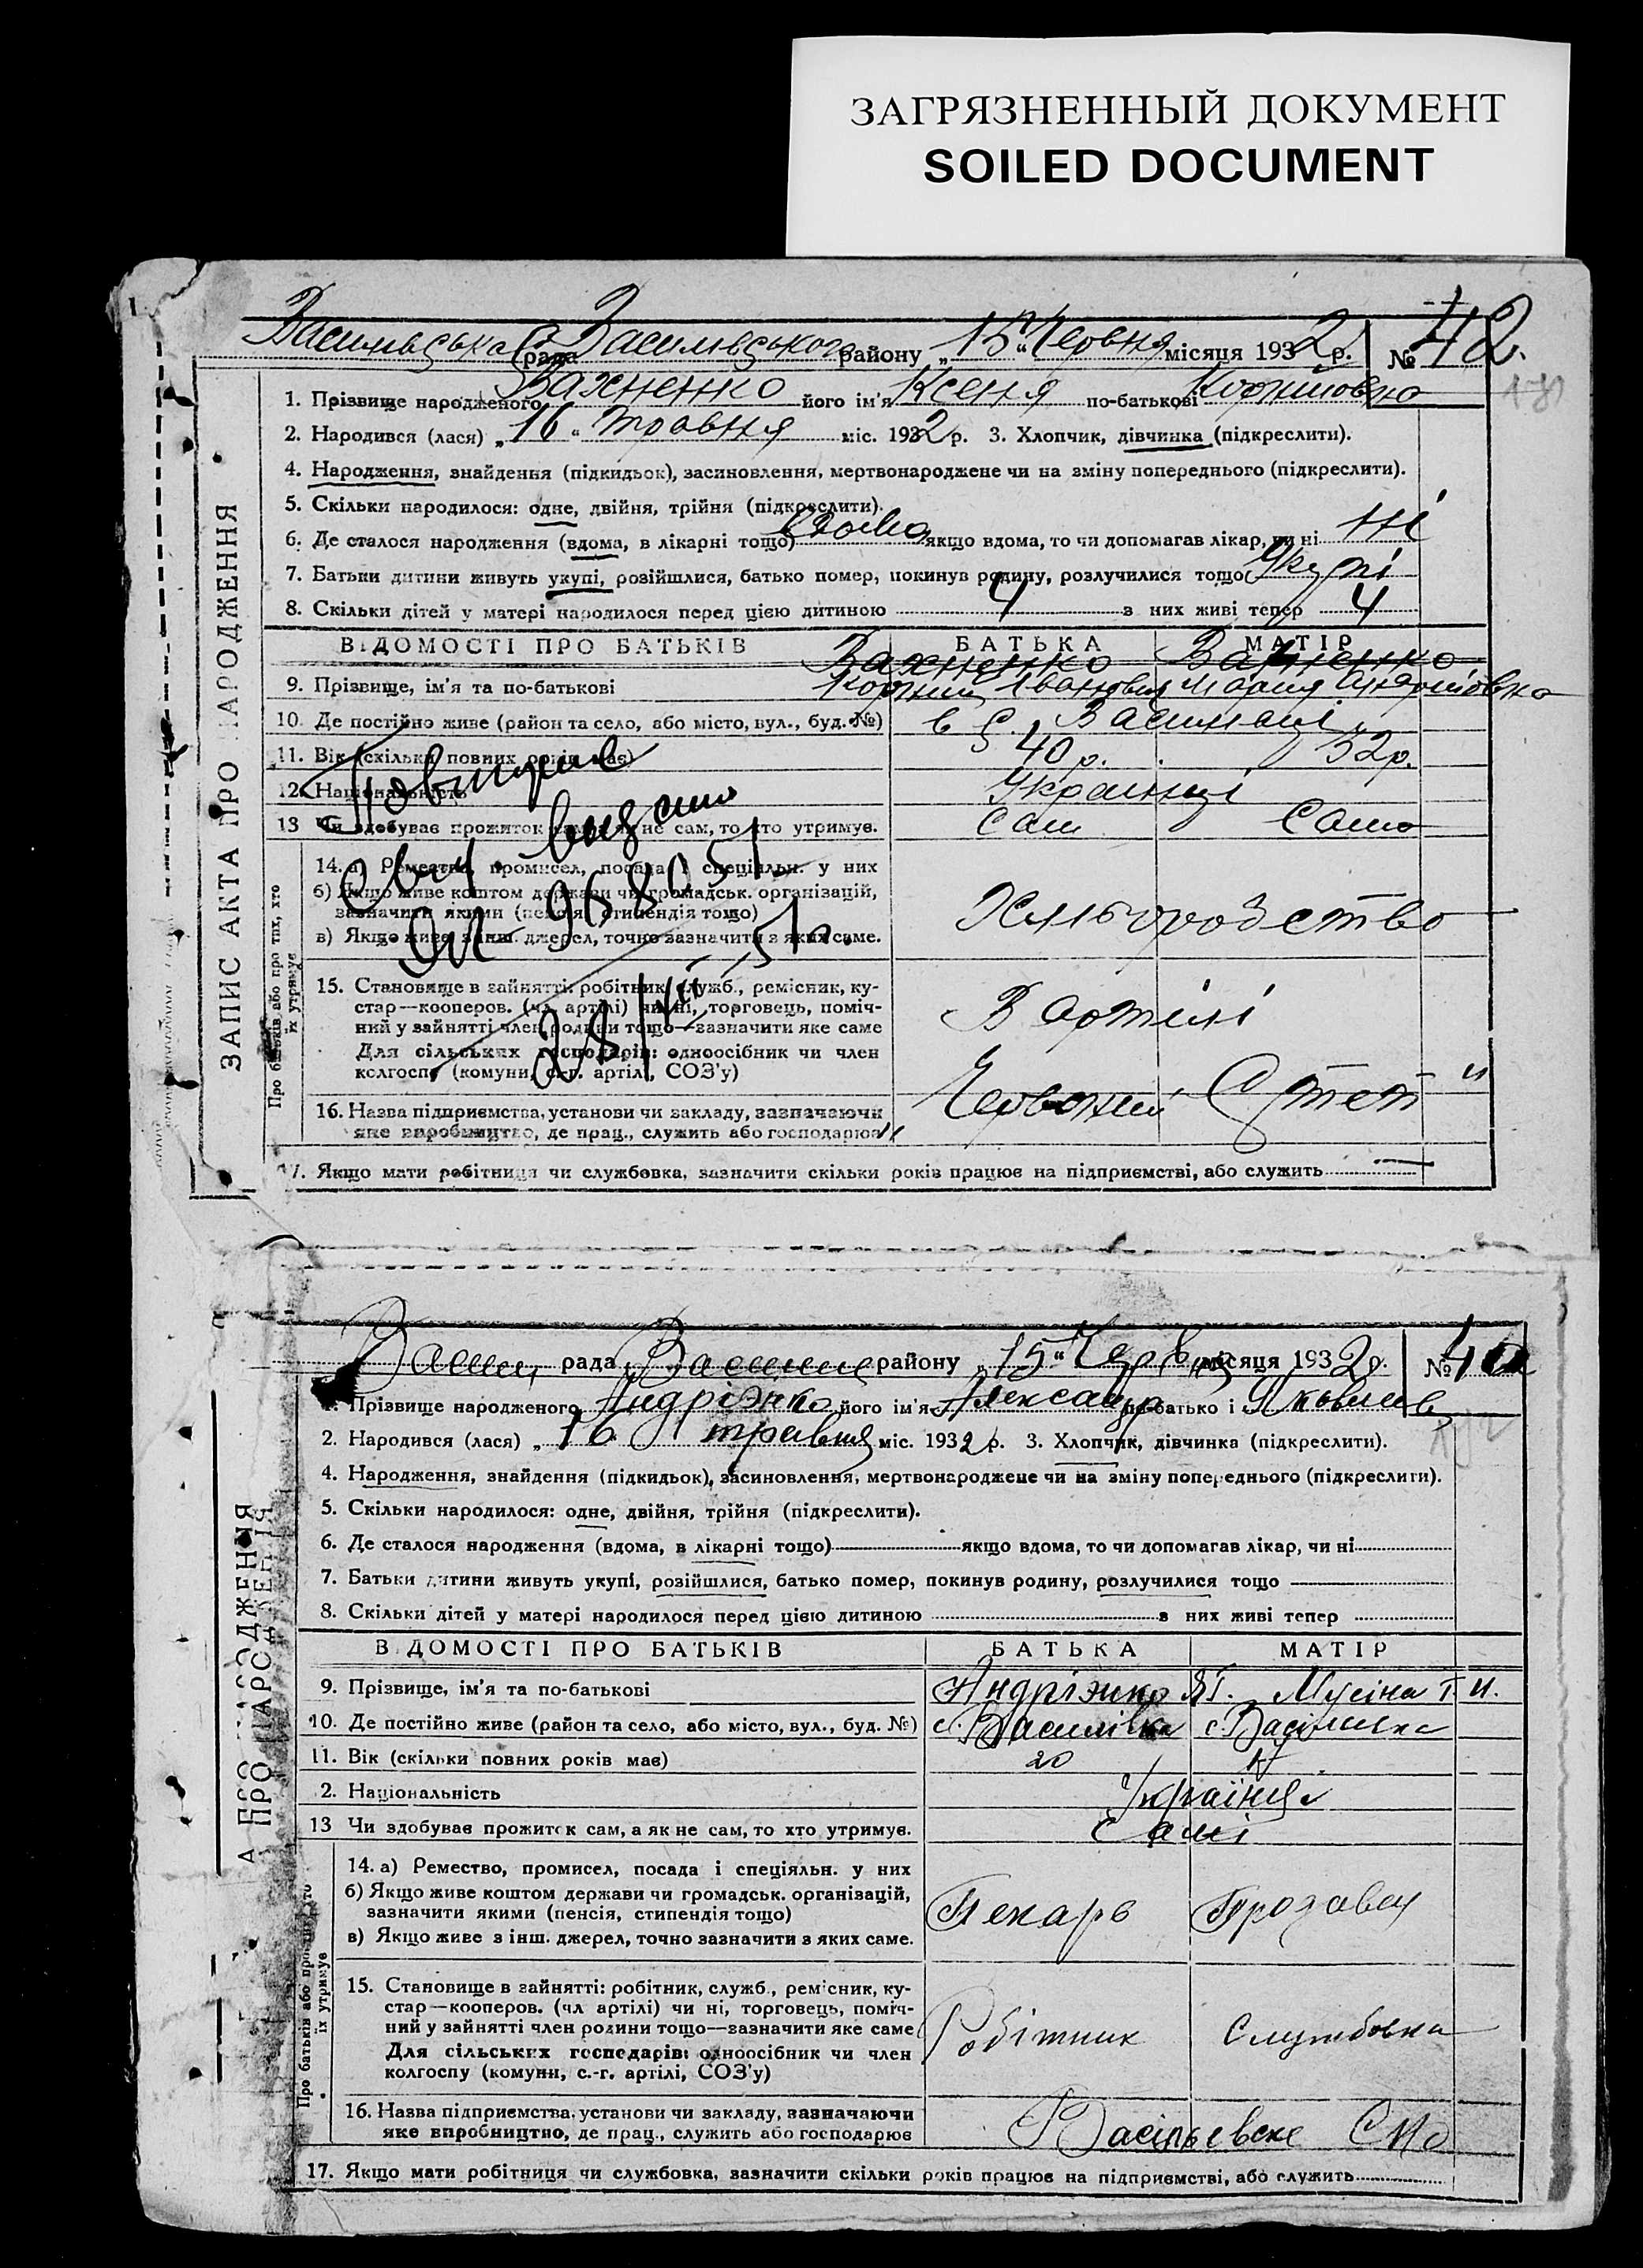 ЗАГРЯЗНЕННЫЙ ДОКУМЕНТ
SOILED DOCUMENT
Василівська рада Василівського району „15“ Червня місяця 1932 р. № 42.
ЗАПИС АКТА ПРО НАРОДЖЕННЯ
1. Прізвище народженого Вахненко його ім'я Ксеня по-батькові
2. Народився (лася) „16“ Травня міс. 1932 р. 3. Хлопчик, дівчинка (підкреслити).
4. Народження, знайдення (підкидьок), засиновлення, мертвонароджене чи на зміну попереднього (підкреслити).
5. Скільки народилося: одне, двійня, трійня (підкреслити).
6. Де сталося народження (вдома, в лікарні тощо) вдома якщо вдома, то чи допомагав лікар, чи ні ні
7. Батьки дитини живуть укупі, розійшлися, батько помер, покинув родину, розлучилися тощо Укупі
8. Скільки дітей у матері народилося перед цією дитиною 4 з них живі тепер 4
ВІДОМОСТІ ПРО БАТЬКІВ БАТЬКА МАТІР
Вахненко Вахненко
9. Прізвище, ім'я та по-батькові Іванович Мария
10. Де постійно живе (район та село, або місто, вул., буд. №) в с. Василівці
11. Вік (скільки повних років має) 40 р. 32 р.
12. Національність Украінці
13 Чи здобуває прожиток сам, а як не сам, то хто утримує. Сам Сама
Повторне
свід. видано
28/VII 51 р.
Про батьків або про тих, хто їх утримує
14. а) Ремество, промисел, посада і спеціяльн. у них
б) Якщо живе коштом держави чи громадськ. організацій,
зазначити якими (пенсія, стипендія тощо)
в) Якщо живе з інш. джерел, точно зазначити з яких саме.
15. Становище в зайнятті: робітник, служб., ремісник, ку-
стар—кооперов. (чл. артілі) чи ні, торговець, поміч-
ний у зайнятті член родини тощо—зазначити яке саме
В артілі
Для сільських господарів: одноосібник чи член
колгоспу (комуни, с.-г. артілі, СОЗ'у)
16. Назва підприємства, установи чи закладу, зазначаючи
яке виробництво, де прац., служить або господарює „Червоний Степ“
17. Якщо мати робітниця чи службовка, зазначити скільки років працює на підприємстві, або служить —
рада району „15“ Червня місяця 1932 р. №
ПРО НАРОДЖЕННЯ
1. Прізвище народженого Андріэнко його ім'я Александр по-батько і
2. Народився (лася) „16 травня міс. 1932 р. 3. Хлопчик, дівчинка (підкреслити).
4. Народження, знайдення (підкидьок), засиновлення, мертвонароджене чи на зміну попереднього (підкреслити).
5. Скільки народилося: одне, двійня, трійня (підкреслити).
6. Де сталося народження (вдома, в лікарні тощо) якщо вдома, то чи допомагав лікар, чи ні
7. Батьки дитини живуть укупі, розійшлися, батько помер, покинув родину, розлучилися тощо
8. Скільки дітей у матері народилося перед цією дитиною з них живі тепер
ВІДОМОСТІ ПРО БАТЬКІВ БАТЬКА МАТІР
9. Прізвище, ім'я та по-батькові Андріэнко Я Г. Мусіна Т. И.
10. Де постійно живе (район та село, або місто, вул., буд. №) с. Василівка с.
11. Вік (скільки повних років має) 20
2. Національність Українці
13 Чи здобуває прожиток сам, а як не сам, то хто утримує. Самі
Про батьків або про тих, хто їх утримує
14. а) Ремество, промисел, посада і спеціяльн. у них
б) Якщо живе коштом держави чи громадськ. організацій,
зазначити якими (пенсія, стипендія тощо)
Пекарь Продавец
в) Якщо живе з інш. джерел, точно зазначити з яких саме.
15. Становище в зайнятті: робітник, служб., ремісник, ку-
стар—кооперов. (чл артілі) чи ні, торговець, поміч-
ний у зайнятті член родини тощо—зазначити яке саме
Робітник Службовка
Для сільських господарів: одноосібник чи член
колгоспу (комуни, с.-г. артілі, СОЗ'у)
16. Назва підприємства, установи чи закладу, зазначаючи
яке виробництво, де прац., служить або господарює
17. Якщо мати робітниця чи службовка, зазначити скільки років працює на підприємстві, або служить